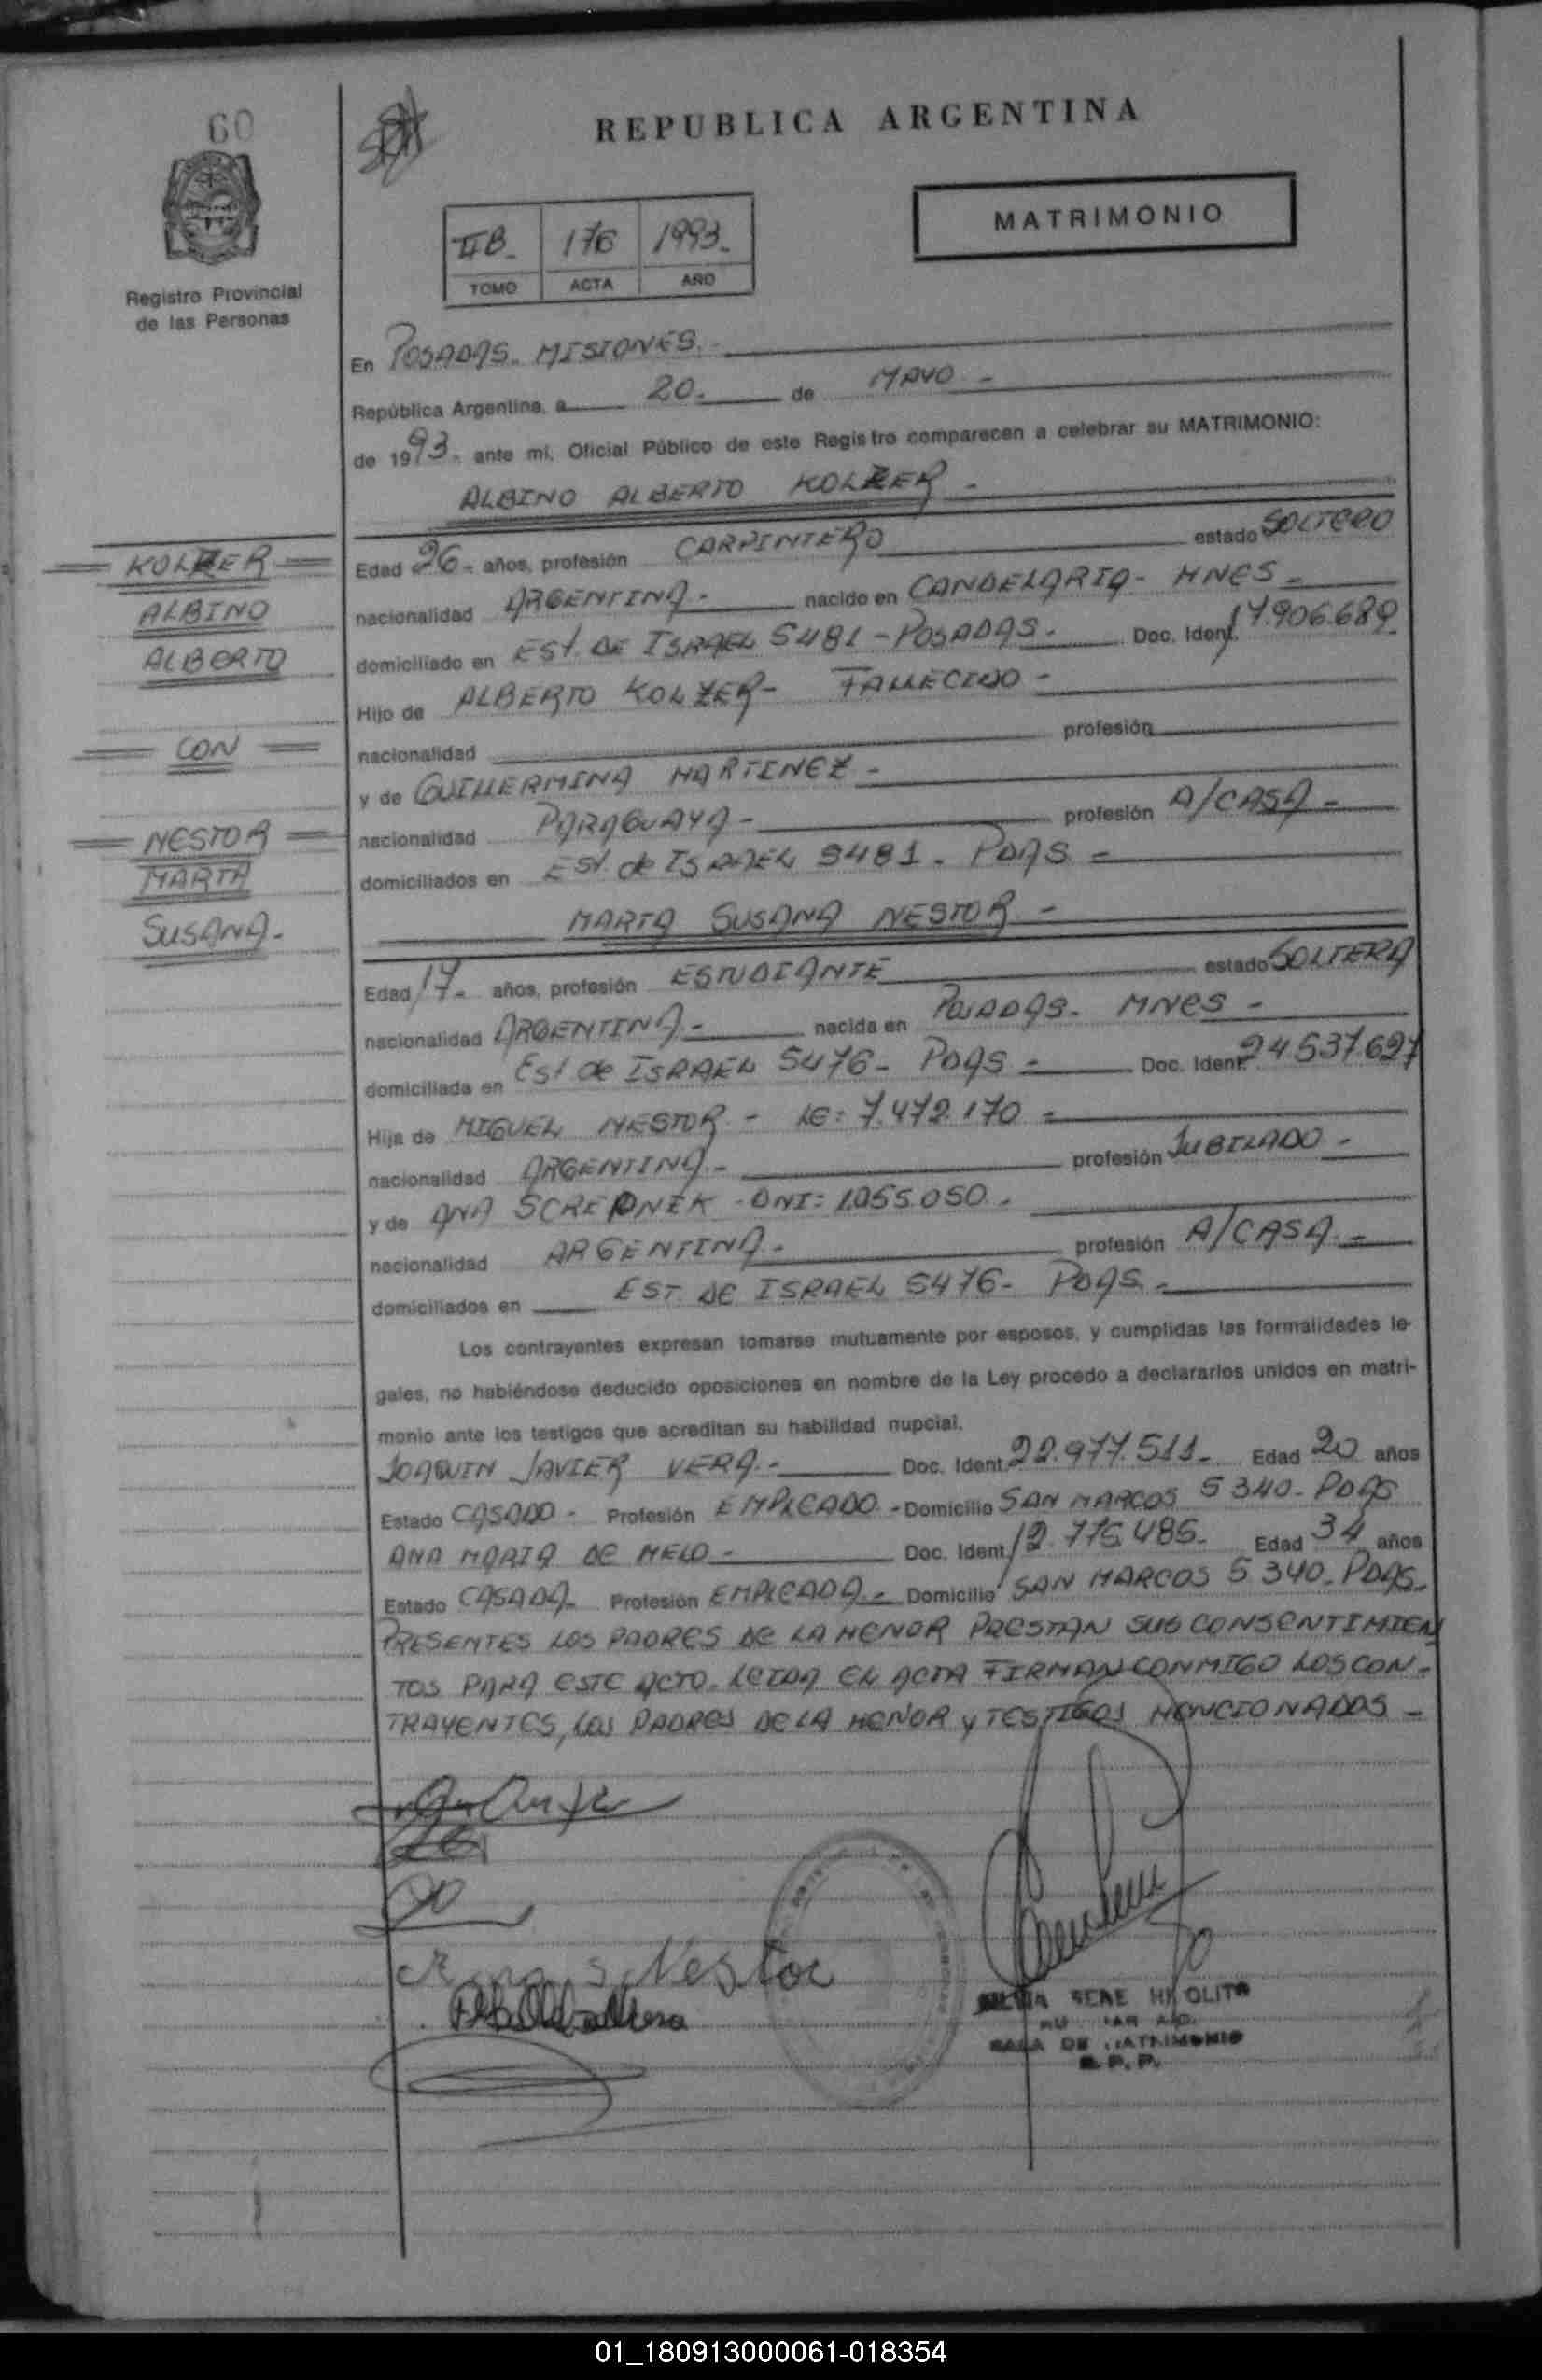 60
REPUBLICA ARGENTINA
MATRIMONIO
IIB. 176 1993.
TOMO ACTA AÑO
Registro Provincial
de las Personas
En POSADAS. MISIONES.
República Argentina, a 20. de MAYO -
de 1993. ante mí, Oficial Público de este Registro comparecen a celebrar su MATRIMONIO:
ALBINO ALBERTO KOLZER -
KOLZER
ALBINO
ALBERTO
CON
NESTOR
MARTA
SUSANA.-
Edad 26- años, profesión CARPINTERO estado SOLTERO
nacionalidad ARGENTINA.- nacido en CANDELARIA- MNES-
domiciliado en Est. DE ISRAEL 5481 - POSADAS. Doc. Ident. 17.906.689
Hijo de ALBERTO KOLZER- FALLECIDO -
nacionalidad profesión
y de GUILLERMINA MARTINEZ -
nacionalidad PARAGUAYA - profesión A/CASA -
domiciliados en Est. de ISRAEL 5481. PDAS -
MARTA SUSANA NESTOR -
Edad 17- años, profesión ESTUDIANTE estado SOLTERA
nacionalidad ARGENTINA.- nacida en POSADAS. MNES -
domiciliada en Est. de ISRAEL 5476- PDAS - Doc. Ident. 24.537.627
Hija de MIGUEL NESTOR - LE: 7.472.170 -
nacionalidad ARGENTINA.- profesión JUBILADO -
y de ANA SCREPNEK - DNI: 1.055.050.-
nacionalidad ARGENTINA.- profesión A/CASA.-
domiciliados en EST. DE ISRAEL 5476- PDAS.-
Los contrayentes expresan tomarse mutuamente por esposos, y cumplidas las formalidades le-
gales, no habiéndose deducido oposiciones en nombre de la Ley procedo a declararlos unidos en matri-
monio ante los testigos que acreditan su habilidad nupcial.
JOAQUIN JAVIER VERA.- Doc. Ident. 22.977.511- Edad 20 años
Estado CASADO - Profesión EMPLEADO - Domicilio SAN MARCOS 5340- PDAS
ANA MARIA DE MELO - Doc. Ident. 12.775.485- Edad 34 años
Estado CASADA- Profesión EMPLEADA.- Domicilio SAN MARCOS 5340- PDAS-
PRESENTES LOS PADRES DE LA MENOR PRESTAN SUS CONSENTIMIEN
TOS PARA ESTE ACTO. LEIDA EL ACTA FIRMAN CONMIGO LOS CON-
TRAYENTES, LOS PADRES DE LA MENOR y TESTIGOS MENCIONADOS -
Nestor
SALA DE MATRIMONIO
01_180913000061-018354